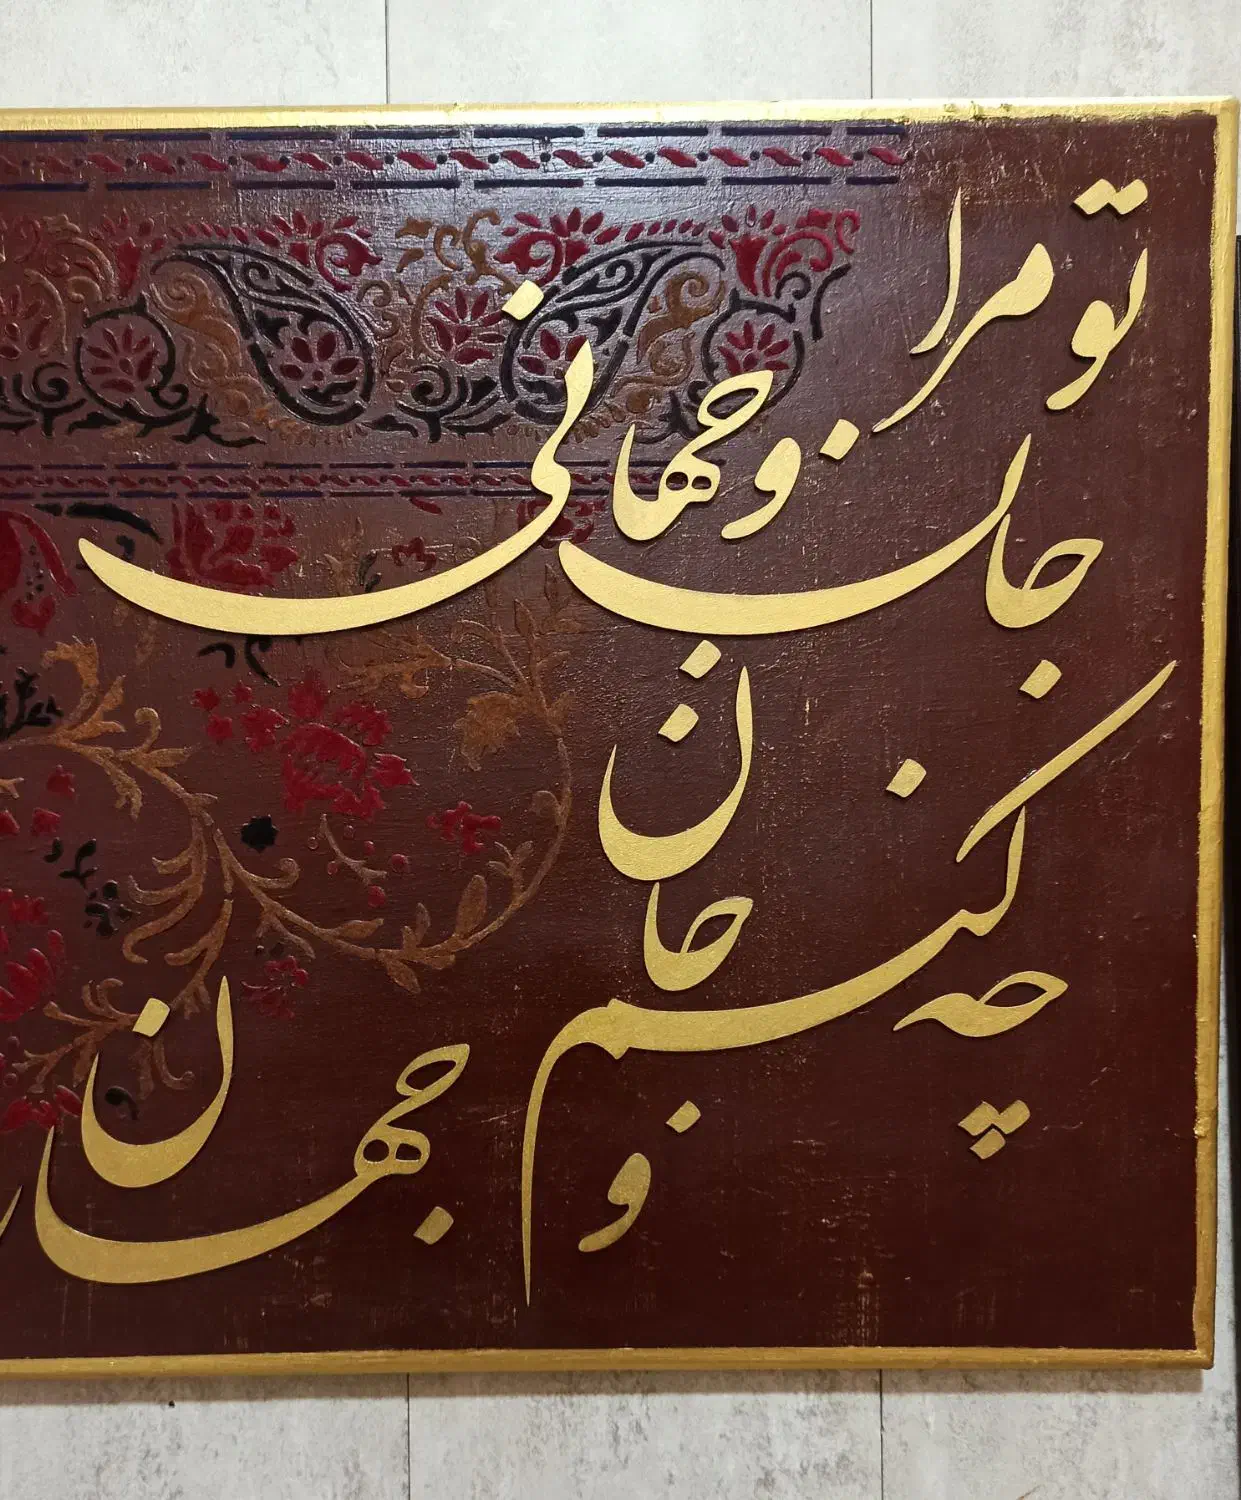 تو مرا
جان و جهانی
چه کنم جان
و جهان